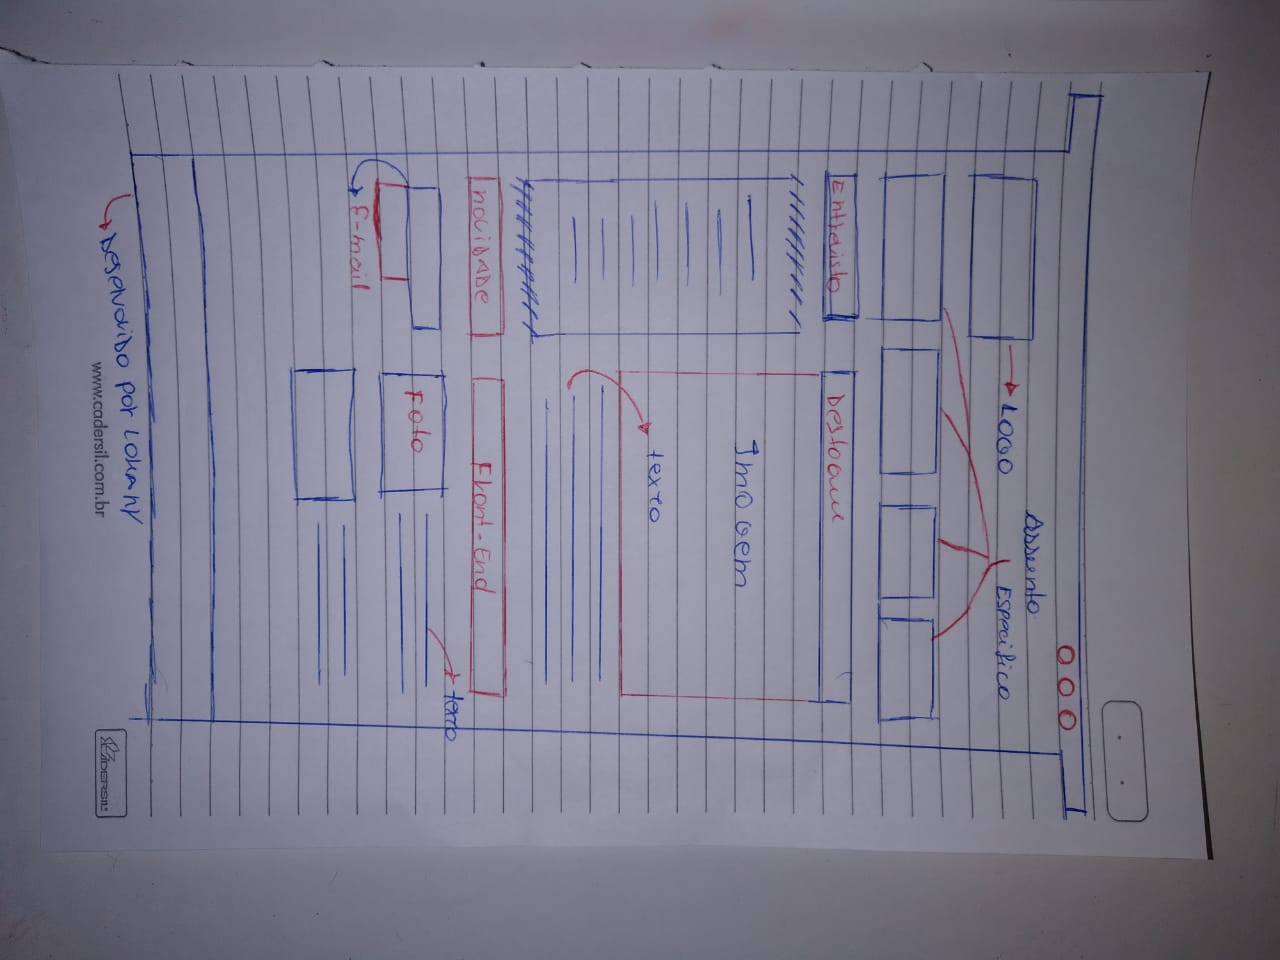 LOGO
Assunto
Especifico
Entrevista
Destaque
Imagem
texto
novidade
Front-End
texto
Foto
E-mail
Desenvolvido por Lohany
www.cadersil.com.br
CADERSIL